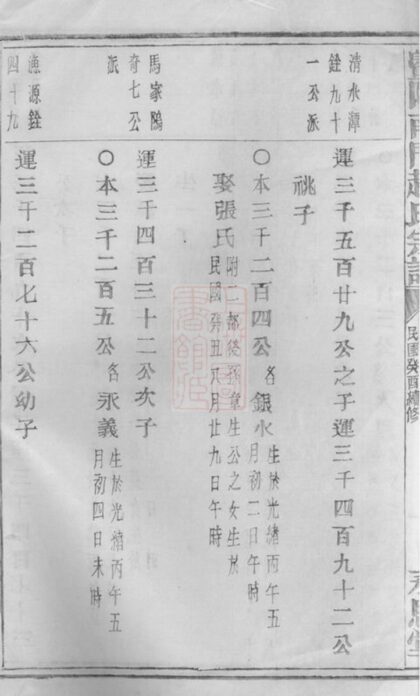 民國癸酉續修
清水潭
銓九十
一公派
運三千五百廿九公之子運三千四百九十二公
祧子
〇本三千二百四公名銀水生於光緒丙午五
月初二日午時
娶張氏附二都後孫童生公之女生於
民國癸丑八月廿九日午時
馬家鴎
奇七公
派
運三千四百三十二公次子
〇本三千二百五公名永義生於光緒丙午五
月初四日未時
漁源銓
四十九
運三千二百七十六公幼子